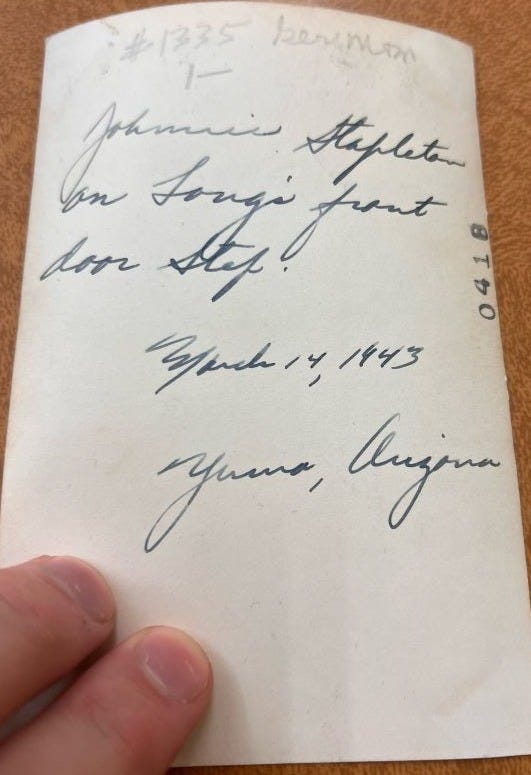 #1335
1—
Johnnie Stapleton
on Long's front
door step.
March 14, 1943
Yuma, Arizona
0418